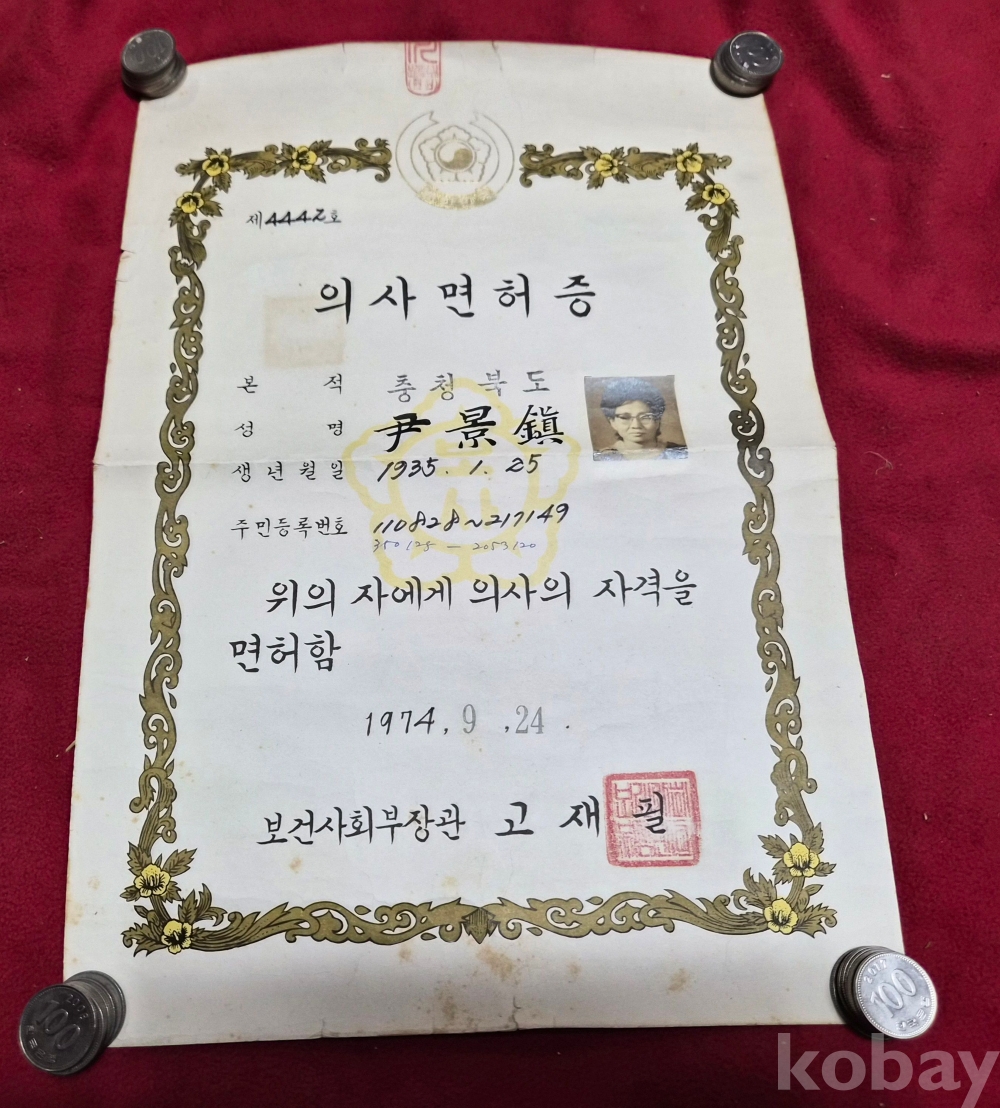 제4442호
의사면허증
본적 충청북도
성명 尹景鎭
생년월일 1935. 1. 25
주민등록번호 110828~217149
350125 - 2053120
위의 자에게 의사의 자격을
면허함
1974. 9. 24.
보건사회부장관 고재필
100
2017
100
kobay